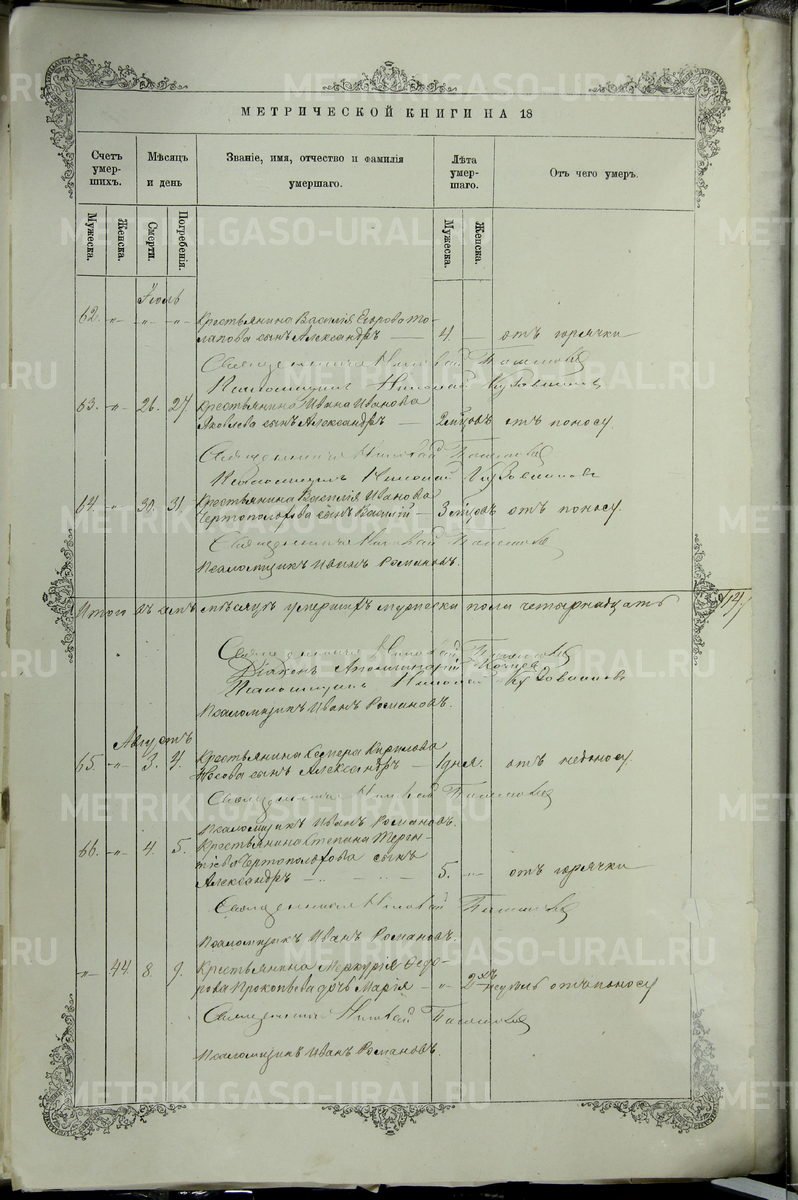 МЕТРИЧЕСКОЙ КНИГИ НА 18
Счетъ умер-шихъ.
Мѣсяцъ и день
Званіе, имя, отчество и фамилія умершаго.
Лѣта умер-шаго.
Отъ чего умеръ.
Мужеска.
Женска.
Смерти.
Погребенія.
Мужеска.
Женска.
Іюль
62. -"- -"- -"- Крестьянина Василія Егорова То-
лапова сынъ Александръ — 4. отъ горячки
Священникъ Николай
Псаломщикъ Николай Кудовшиковъ
63. -"- 26. 27 Крестьянина Ивана Иванова
Яковлева сынъ Александръ — 2 мѣсяцовъ отъ поносу.
Священникъ Николай
Псаломщикъ Николай Кудовшиковъ
64. -"- 30. 31. Крестьянина Василія Иванова
Чертополохова сынъ Василій — 3 мѣсяцовъ отъ поносу.
Священникъ Николай
Псаломщикъ Иванъ Романовъ.
Итого въ семъ мѣсяцѣ умершихъ мужеска пола четырнадцать 14
Священникъ Николай
Діаконъ Аполлинарій
Псаломщикъ Николай Кудовшиковъ
Псаломщикъ Иванъ Романовъ.
Августъ
65. -"- 3. 4. Крестьянина Кирилова
Носова сынъ Александръ — 1 дня. отъ недоносу.
Священникъ Николай
Псаломщикъ Иванъ Романовъ.
66. -"- 4. 5. Крестьянина Степана Терен-
тіева Чертополохова сынъ
Александръ — 5. -"- отъ горячки
Священникъ Николай
Псаломщикъ Иванъ Романовъ.
-"- 44. 8. 9. Крестьянина Меркурія Ѳедо-
рова Прокопьева дочь Марія — -"- 2хъ недѣль отъ поносу
Священникъ Николай
Псаломщикъ Иванъ Романовъ.
METRIKI.GASO-URAL.RU